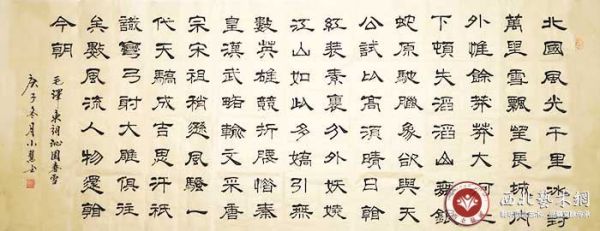 北國風光千里冰封
萬里雪飄望長城內
外惟餘莽莽大河上
下頓失滔滔山舞銀
蛇原馳臘象欲與天
公試比高須晴日看
紅裝素裹分外妖嬈
江山如此多嬌引無
數英雄競折腰惜秦
皇漢武略輸文采唐
宗宋祖稍遜風騷一
代天驕成吉思汗祇
識彎弓射大雕俱往
矣數風流人物還看
今朝
毛澤東詞沁園春雪
庚子冬月小慧書
西北藝术網